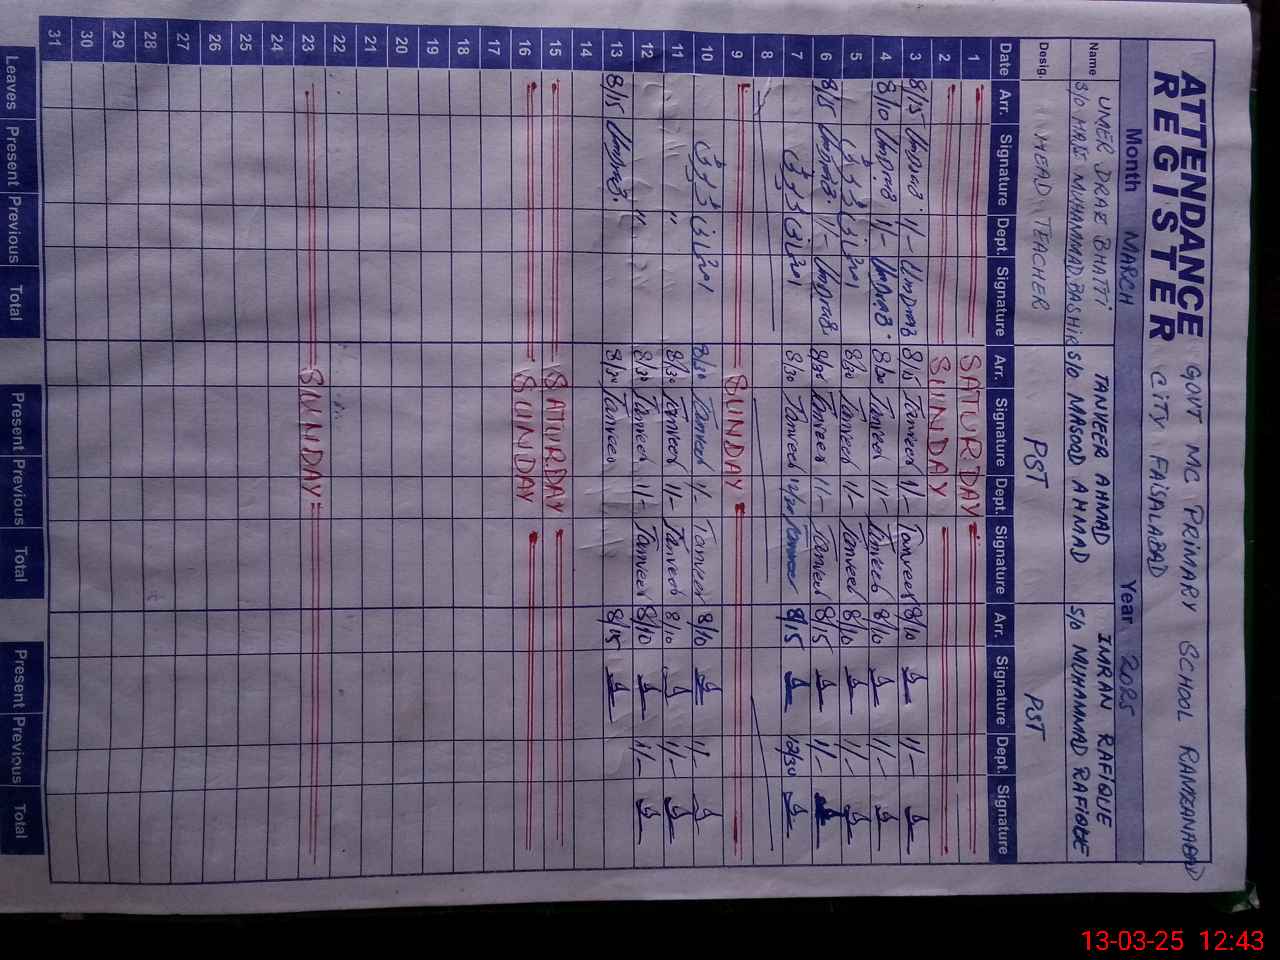 ATTENDANCE REGISTER
GOVT MC PRIMARY SCHOOL RAMZANABAD
CITY FAISALABAD
Month MARCH Year 2025
Name UMER DRAZ BHATTI TANVEER AHMAD IMRAN RAFIQUE
S/O HAJI MUHAMMAD BASHIR S/O MASOOD AHMAD S/O MUHAMMAD RAFIQUE
Desig. HEAD TEACHER PST PST
Date Arr. Signature Dept. Signature Arr. Signature Dept. Signature Arr. Signature Dept. Signature
1 SATURDAY
2 SUNDAY
3 8/15 11/- 8/15 Tanveer 1/- Tanveer 8/10 11/-
4 8/10 11/- 8/30 Tanveer 11/- Tanveer 8/10 11/-
5 8/30 Tanveer 11/- Tanveer 8/10 11/-
6 8/15 11/- 8/30 Tanveer 11/- Tanveer 8/15 11/-
7 8/30 Tanveer 12/30 Tanveer 8/15 12/30
8
9 SUNDAY
10 8/30 Tanveer 1/- Tanveer 8/10 1/-
11 " 8/30 Tanveer 11/- Tanveer 8/10 11/-
12 " 8/30 Tanveer 11/- Tanveer 8/10 11/-
13 8/15 8/30 Tanveer 8/15
14
15 SATURDAY
16 SUNDAY
17
18
19
20
21
22
23 SUNDAY
24
25
26
27
28
29
30
31
Leaves Present Previous Total Present Previous Total Present Previous Total
13-03-25 12:43